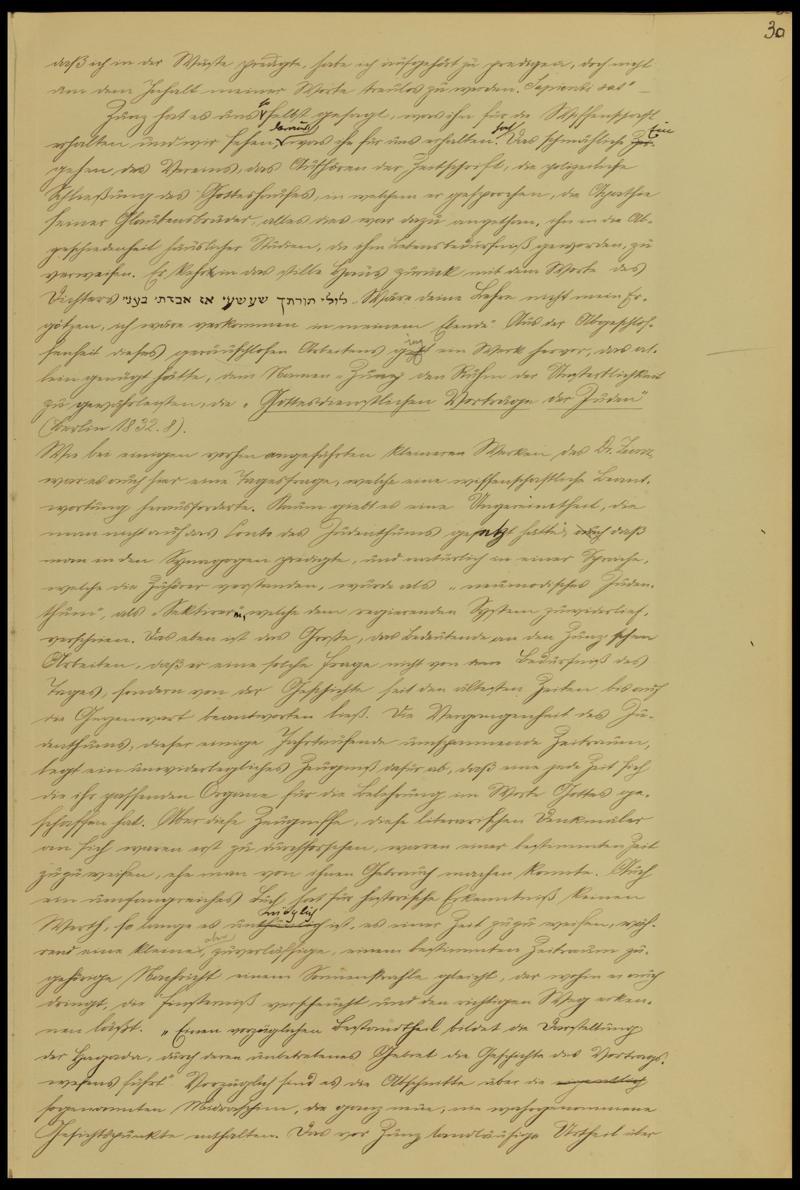 30
daß ich in der Wüste predigte, habe ich aufgehört zu predigen, doch nicht
um dem Inhalt meiner Worte treulos zu werden. Sapienti sat" —
Zunz hat es uns so selbst gesagt, was ihn für die Wissenschaft
erhalten und wir sehen daraus, was ihn für uns erhalten hat. Das schmähliche Ein-
gehen des Vereins, das Aufhören der Zeitschrift, die polizeiliche
Schließung des Gotteshauses, in welchem er gesprochen, die Apathie
seiner Glaubensbrüder, alles dies war dazu angethan, ihn in die Ab-
geschiedenheit häuslicher Studien, die ihm Lebensbedürfniß geworden, zu
verweisen. Er kehrt in das stille Haus zurück mit dem Worte des
Dichters לולי תורתך שעשעי אז אבדתי בעניי „Wäre deine Lehre nicht mein Er-
götzen, ich wäre verkommen in meinem Elende" Aus der Abgeschlos-
senheit dieses geräuschlosen Arbeitens ging ein Werk hervor, das al-
lein genügt hätte, dem Namen „Zunz" den Ruhm der Unsterblichkeit
zu gewährleisten, die „Gottesdienstlichen Vorträge der Juden"
(Berlin 1832. 8).
Wie bei einigen vorhin angeführten kleineren Werken des Dr. Zunz,
war es auch hier eine Tagesfrage, welche eine wissenschaftliche Beant-
wortung herausforderte. Kaum giebt es eine Ungereimtheit, die
man nicht auf das Conto des Judenthums gesetzt hätte; auch daß
man in den Synagogen predigte, und natürlich in einer Sprache,
welche die Zuhörer verstanden, wurde als „neumodisches Juden-
thum", als „Sektirerei", welche dem regierenden System zuwiderlief,
verschrieen. Das eben ist das Große, das Bedeutende an den Zunz'schen
Arbeiten, daß er eine solche Frage nicht von dem Bedürfniß des
Tages, sondern von der Geschichte seit den ältesten Zeiten bis auf
die Gegenwart beantworten ließ. Die Vergangenheit des Ju-
denthums, dieser einige Jahrtausende umspannende Zeitraum,
legt ein unwiderlegliches Zeugniß dafür ab, daß eine jede Zeit sich
die ihr passenden Organe für die Belehrung im Worte Gottes ge-
schaffen hat. Aber diese Zeugnisse, diese literarischen Denkmäler
an sich waren erst zu durchforschen, waren einer bestimmten Zeit
zuzuweisen, ehe man von ihnen Gebrauch machen konnte. Auch
ein umfangreiches Buch hat für historische Erkenntniß keinen
Werth, so lange es unmöglich ist, es einer Zeit zuzuweisen, wäh-
rend eine kleine, aber zuverlässige, einem bestimmten Zeitraum zu-
gehörige Nachricht einem Sonnenstrahle gleicht, der wohin er auch
dringt, die Finsterniß verscheucht und den richtigen Weg erken-
nen läßt. „Einen vorzüglichen Bestandtheil bildet die Darstellung
der Hagada, durch deren unbetretenes Gebiet die Geschichte des Vortrags-
wesens führt" Vorzüglich sind es die Abschnitte über die
sogenannten Midraschim, die ganz neue, nie wahrgenommene
Gesichtspunkte enthalten. Das vor Zunz landläufige Urtheil über